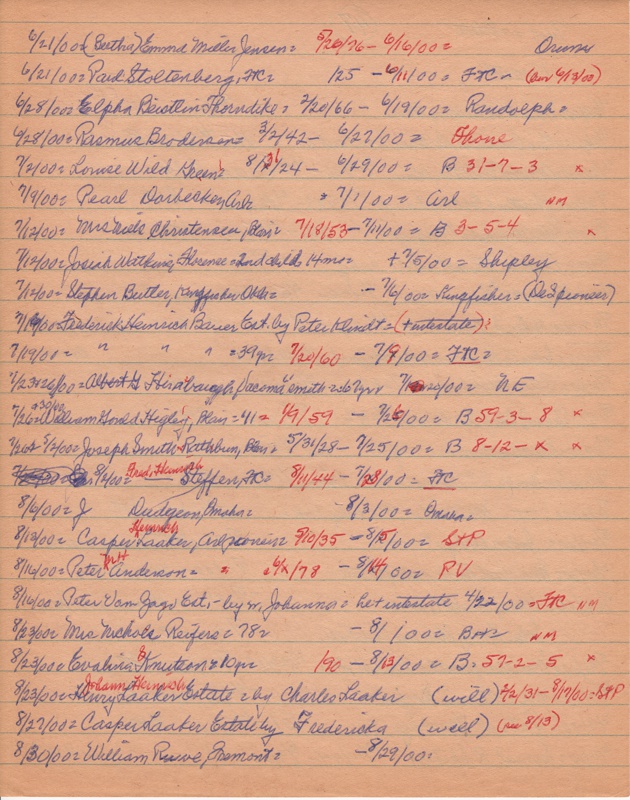 6/21/00= (Bertha) Emma Miller Jensen= 5/20/76 - 6/16/00= Orum
6/21/00= Paul Stoltenberg, FC= 125 - 6/11/00= FC - (bur 6/13/00)
6/28/00= Elpha Beistlin Thorndike= 2/20/66 - 6/19/00= Randolph=
6/28/00= Rasmus Brodersen= 3/2/42 - 6/27/00= Phone
7/2/00= Louise Wild 8/31/24 - 6/29/00= B 31-7-3 x
7/9/00= Pearl Dorbecker, Arl= = 7/1/00= Arl NM
7/12/00= Mrs Niels Christensen, Blair= 7/18/53 - 7/11/00= B 3-5-4 x
7/12/00= Josiah Watkins, Florence= 2nd child 14 mo= + 7/5/00= Shipley
7/12/00= Stephen Butler, Kingfisher Okla= - 7/6/00= Kingfisher= (De Spioneer)
7/19/00= Frederick Heinrich Bauer Est. by Peter Klindt= (+ intestate)
7/19/00= " " " =39yr 7/20/60 - 7/9/00= FC=
Albert G Hirabaugh, Tacoma, smith= 26 7yrs /00= NE
7/26 + 30/00= William Gould Higley, Blair= 41= 1/9/59 - 7/26/00= B 59-3-8 x
7/26 & 8/2/00= Joseph Smith Rathbun, Blair= 5/31/28 - 7/25/00= B 8-12-x x
8/2/00= Fred Heinrich Steffen, FC= 8/11/44 - 7/28/00= FC
8/6/00= J Dudgeon, Omaha= - 8/3/00= Omaha=
8/13/00= Casper Heinrich Laaker, Arl, pioneer= 9/10/35 - 8/5/00= StP
8/16/00= Peter Anderson= x 6/x/78 - 8/14/00= PV
8/16/00= Peter Van Jago Est.,- by w. Johanna= he + intestate 4/22/00= FC NM
8/23/00= Mrs Nichols Reifers= 78= - 8/ /00= B NM
8/23/00= Evaline Knutton= 10yr 190 - 8/13/00= B= 57-2-5 x
8/23/00= Johann Heinrich Henry Laaker Estate= by Charles Laaker (will) 2/2/31 - 8/17/00= StP
8/27/00= Casper Laaker Estate by Fredericka (will) (see 8/13)
8/30/00= William Ruwe, Fremont= - 8/29/00=